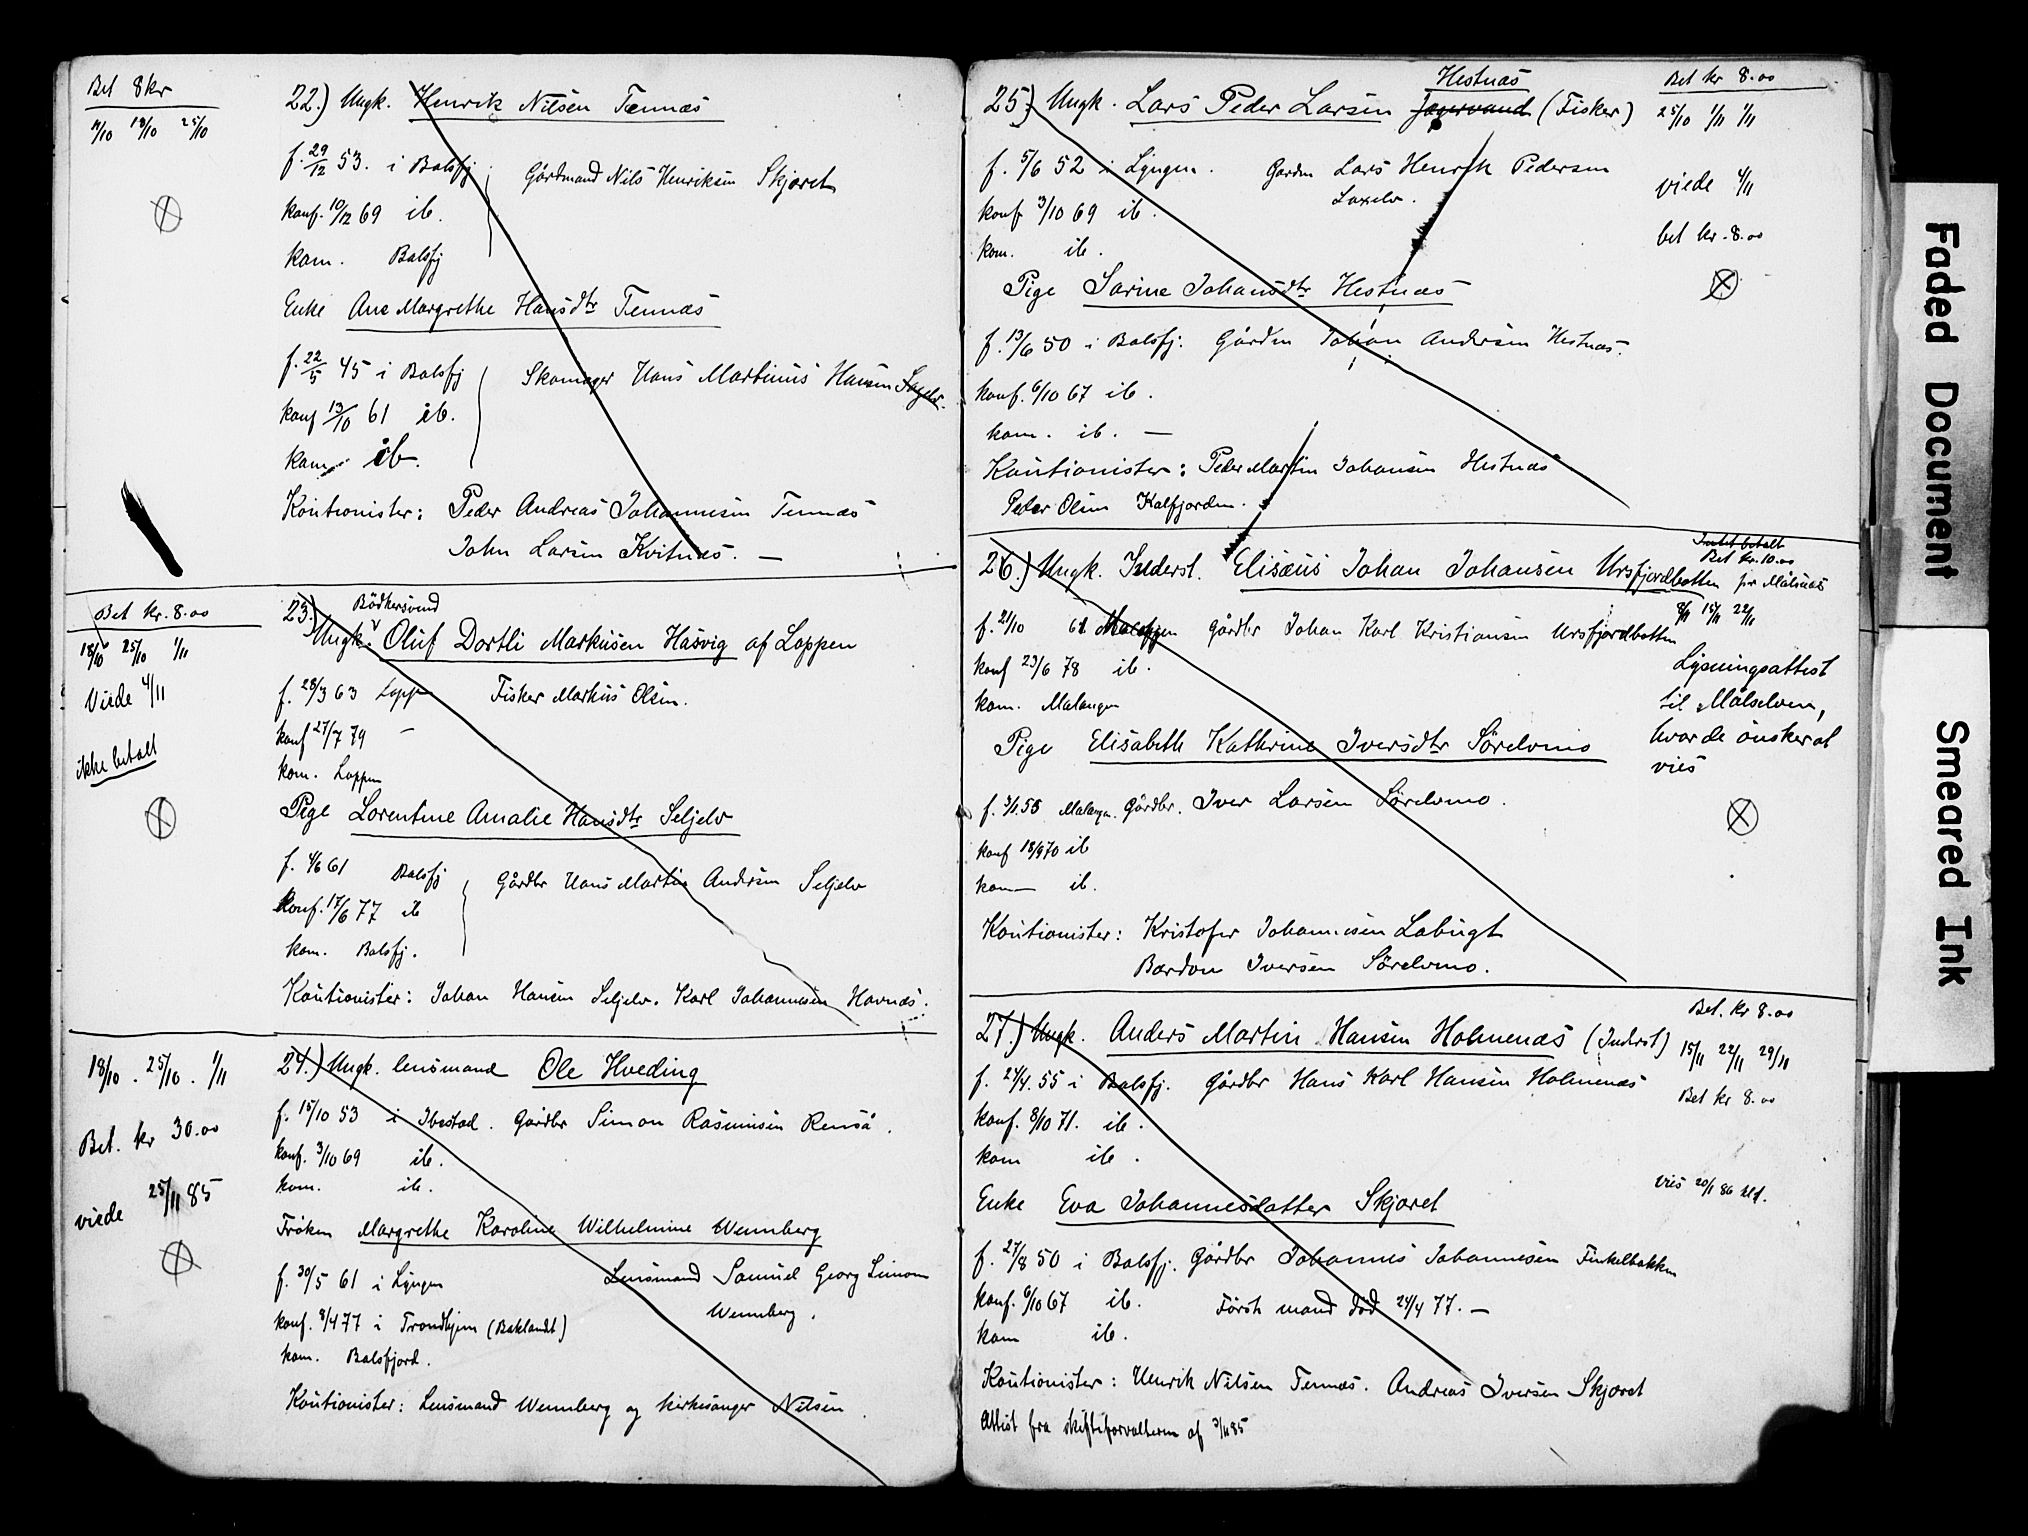 Bet 8 kr
11/10 18/10 25/10
22.) Ungk. Henrik Nilsen Tennæs
f. 29/12 53. i Balsfj Gårdmand Nils Henriksen Skjæret
konf. 10/12 69 ib.
kom. Balsfj
Enke Ane Margrethe Hansdtr Tennæs
f. 22/5 45 i Balsfj Skomager Hans Martinus Hansen Sagelv.
konf 13/10 61 ib.
kom. ib.
Kautionister: Peder Andreas Johannesen Tennæs
John Larsen Kvitnæs. —
Bet kr. 8.00
18/10 25/10 1/11
Viede 4/11
ikke betalt
23.) Bödkersvend
Ungk. Oluf Dortli Markusen Hasvig af Loppen
f. 28/3 63 Lopp Fisker Markus Olsen.
konf 27/7 79 —
kom. Loppen
Pige Lorentine Amalie Hansdtr Seljelv
f. 4/6 61 Balsfj Gårdbr Hans Martin Andersen Seljelv
konf. 17/6 77 ib
kom. Balsfj.
Kautionister: Johan Hansen Seljelv. Karl Johannesen Havnæs.
18/10. 25/10. 1/11
Bet. kr 30.00
viede 25/11 85
24.) Ungk. lensmand Ole Hveding
f. 15/10 53 i Ibestad. Gårdbr Simon Rasmusen Renså.
konf. 3/10 69 ib.
kom. ib.
Fröken Margrethe Karoline Wilhelmine Wennberg
f. 30/5 61 i Lyngen Lensmand Samuel Georg Simon
Wennberg.
konf. 8/4 77 i Trondhjem (Baklandt)
kom. Balsfjord.
Kautionister: Lensmand Wennberg og kirkesanger Nilsen
Bet kr 8.00
25/10 1/11 1/11
viede 4/11
bet kr. 8.00
Hestnæs
25.) Ungk. Lars Peder Larsen Jægervand (Fisker)
f. 5/6 52 i Lyngen. Gårdm Lars Henrik Pedersen
Laxelv.
konf 3/10 69 ib.
kom. ib.
Pige Sarine Johansdtr Hestnæs
f. 13/6 50 i Balsfj. Gårdm Johan Andersen Hestnæs.
konf. 6/10 67 ib.
kom. ib. —
Kautionister: Peder Martin Johansen Hestnæs
Peder Olsen Kalfjorden.
26.) Ungk. Inderst. Elisæus Johan Johansen Ursfjordbotten
Intet betalt
Bet kr. 10.00
for Målsnæs
8/11 15/11 22/11
f. 2/10 61 Malangen gårdbr Johan Karl Kristiansen Ursfjordbotten
konf 23/6 78 ib.
kom. Malangen
Lysningsattest
til Målselven,
hvor de önsker at
vies
Pige Elisabeth Kathrine Iversdtr Sörelvmo
f. 3/1 55 Malangen. Gårdbr. Iver Larsen Sörelvmo.
konf 18/9 70 ib
kom — ib.
Kautionister: Kristofer Johannesen Labugt
Bardon Iversen Sörelvmo.
Bet. kr 8.00
15/11 22/11 29/11
Bet kr 8.00
vies 20/1 86
27.) Ungk. Anders Martin Hansen Holmenæs (Inderst)
f. 24/4. 55 i Balsfj. Gårdbr Hans Karl Hansen Holmenæs
konf. 8/10 71. ib.
kom ib.
Enke Eva Johannesdatter Skjæret
f. 27/8 50 i Balsfj. Gårdbr Johannes Johannesen Finkelbakken
konf. 6/10 67 ib. Förste mand död 24/4 77. —
kom ib.
Kautionister: Henrik Nilsen Tennæs. Andreas Iversen Skjæret
Attest fra skifteforvalteren af 3/11 85
Faded Document
Smeared Ink